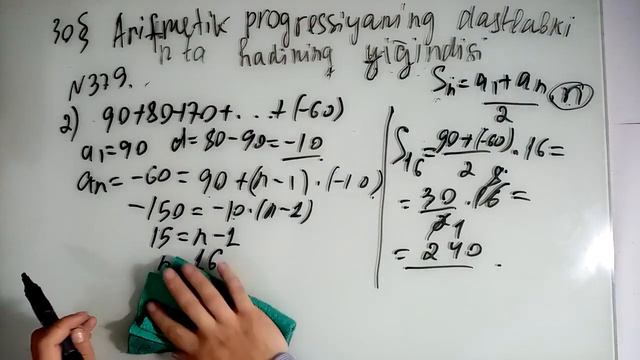 30§ Arifmetik progressiyaning dastlabki
n ta hadining yig'indisi
N379.
Sn = a1 + an / 2 · n
2) 90+80+70+...+(-60)
a1=90 d=80-90=-10
an=-60=90+(n-1)·(-10)
-150=-10·(n-1)
15=n-1
n=16
S16=90+(-60)/2·16=
=30/2·16=
=240